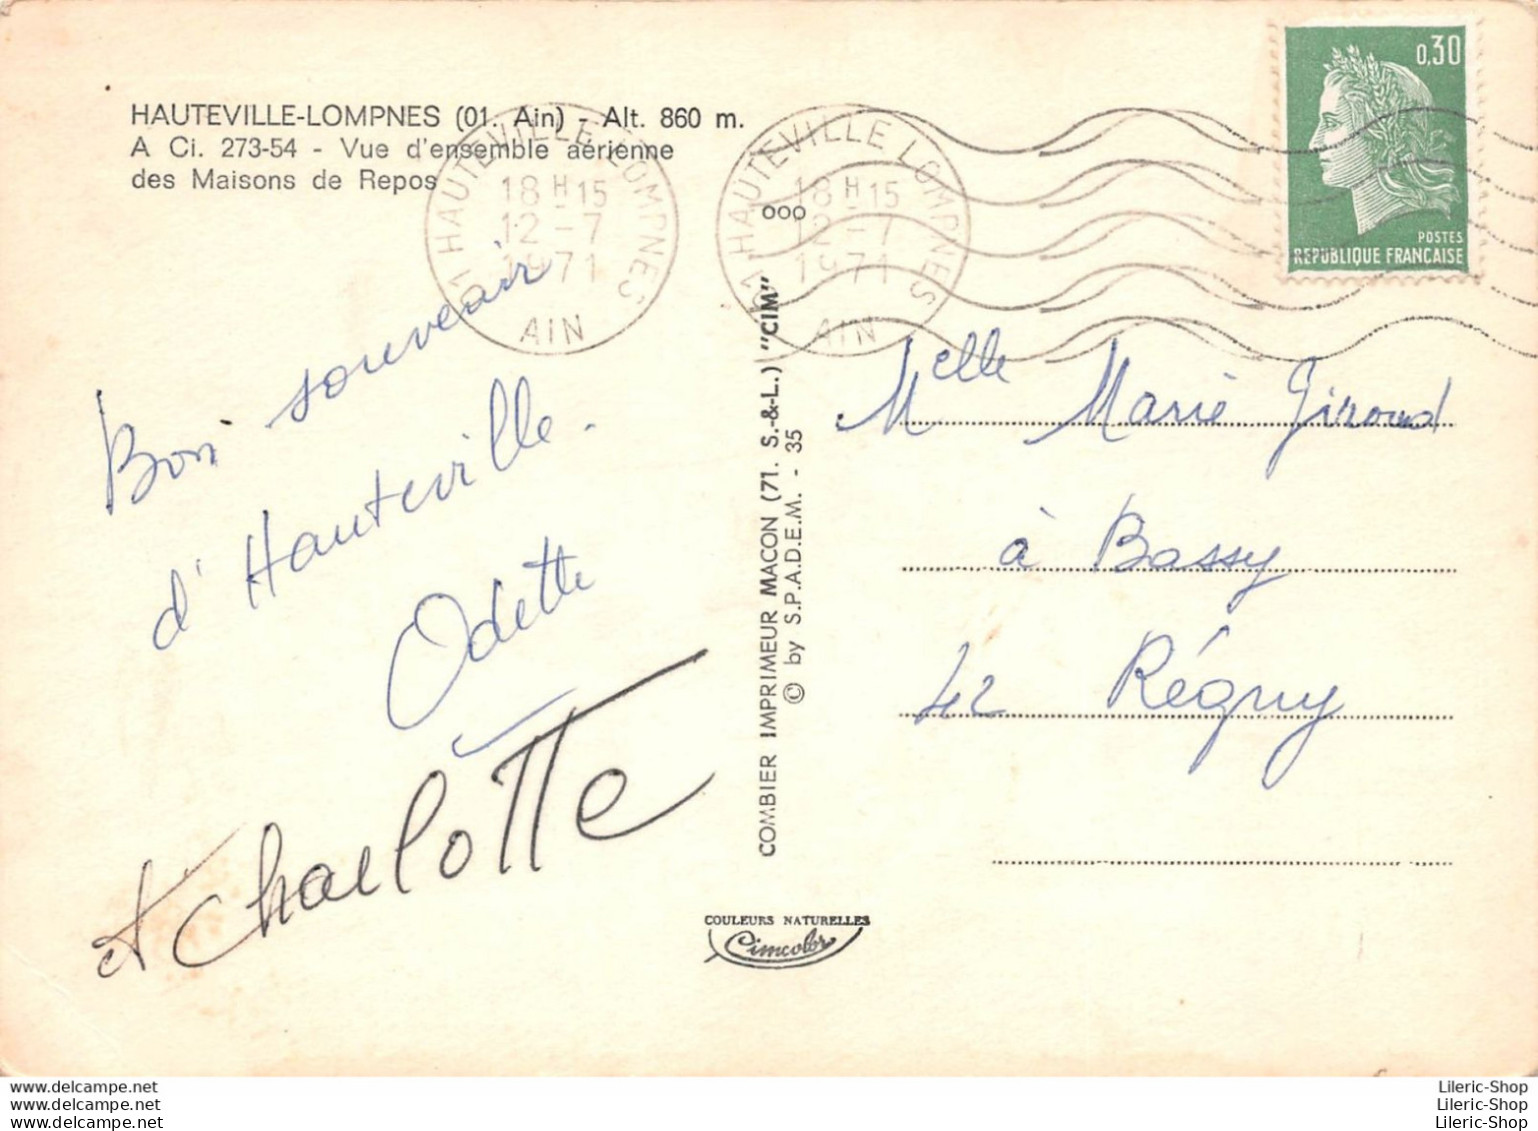 HAUTEVILLE-LOMPNES (01. Ain) - Alt. 860 m.
A Ci. 273-54 - Vue d'ensemble aérienne
des Maisons de Repos
01 HAUTEVILLE LOMPNES
18 H 15
12-7
1971
AIN
01 HAUTEVILLE LOMPNES
18 H 15
12-7
1971
AIN
0,30
POSTES
REPUBLIQUE FRANCAISE
ooo
Bon souvenir
d'Hauteville.
Odette
et Charlotte
COMBIER IMPRIMEUR MACON (71. S.-&-L.) "CIM"
© by S.P.A.D.E.M. - 35
Melle Marie Giroud
à Bassy
42 Régny
COULEURS NATURELLES
Cimcolor
www.delcampe.net
www.delcampe.net
www.delcampe.net
Lileric-Shop
Lileric-Shop
Lileric-Shop